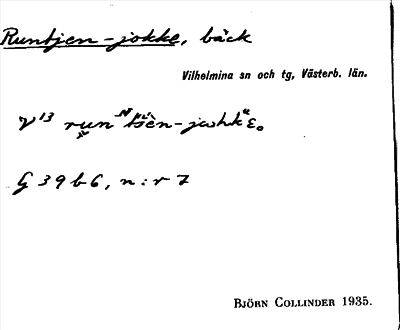 Runtjen-jokke, bäck
Vilhelmina sn och tg, Västerb. län.
V 13
G 39 b 6, n:r 7
BJÖRN COLLINDER 1935.